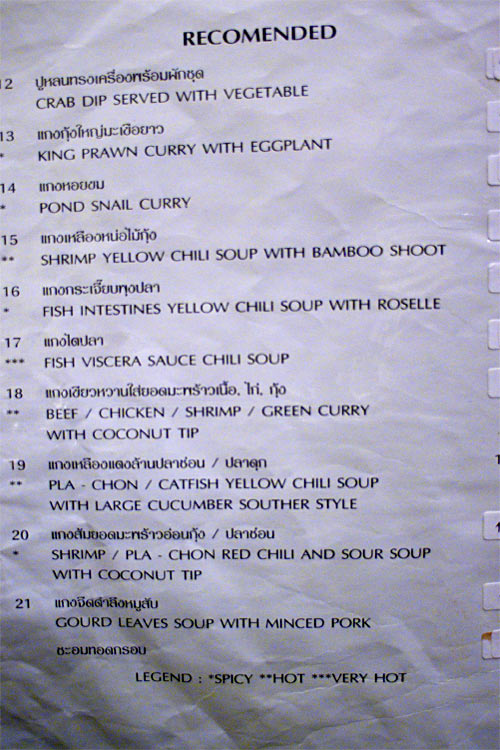 RECOMENDED
12 ปูหลนทรงเครื่องพร้อมผักชุด
CRAB DIP SERVED WITH VEGETABLE
13 แกงกุ้งใหญ่มะเขือยาว
* KING PRAWN CURRY WITH EGGPLANT
14 แกงหอยขม
* POND SNAIL CURRY
15 แกงเหลืองหน่อไม้กุ้ง
** SHRIMP YELLOW CHILI SOUP WITH BAMBOO SHOOT
16 แกงกระเจี๊ยบพุงปลา
* FISH INTESTINES YELLOW CHILI SOUP WITH ROSELLE
17 แกงไตปลา
*** FISH VISCERA SAUCE CHILI SOUP
18 แกงเขียวหวานใส่ยอดมะพร้าวเนื้อ, ไก่, กุ้ง
** BEEF / CHICKEN / SHRIMP / GREEN CURRY
WITH COCONUT TIP
19 แกงเหลืองแตงล้านปลาช่อน / ปลาดุก
** PLA - CHON / CATFISH YELLOW CHILI SOUP
WITH LARGE CUCUMBER SOUTHER STYLE
20 แกงส้มยอดมะพร้าวอ่อนกุ้ง / ปลาช่อน
* SHRIMP / PLA - CHON RED CHILI AND SOUR SOUP
WITH COCONUT TIP
21 แกงจืดตำลึงหมูสับ
GOURD LEAVES SOUP WITH MINCED PORK
ชะอมทอดกรอบ
LEGEND : *SPICY **HOT ***VERY HOT